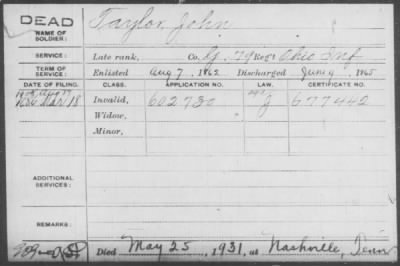 DEAD Taylor, John
NAME OF SOLDIER:
SERVICE: Late rank, Co. G, 79 Reg't Ohio Inf
TERM OF SERVICE: Enlisted Aug 7, 1862 Discharged June 9, 1865
DATE OF FILING. CLASS. APPLICATION NO. LAW. CERTIFICATE NO.
Mar 18 Invalid, 602730 J 677442
Widow,
Minor,
ADDITIONAL SERVICES:
REMARKS:
Died May 25, 1931, at Nashville, Tenn